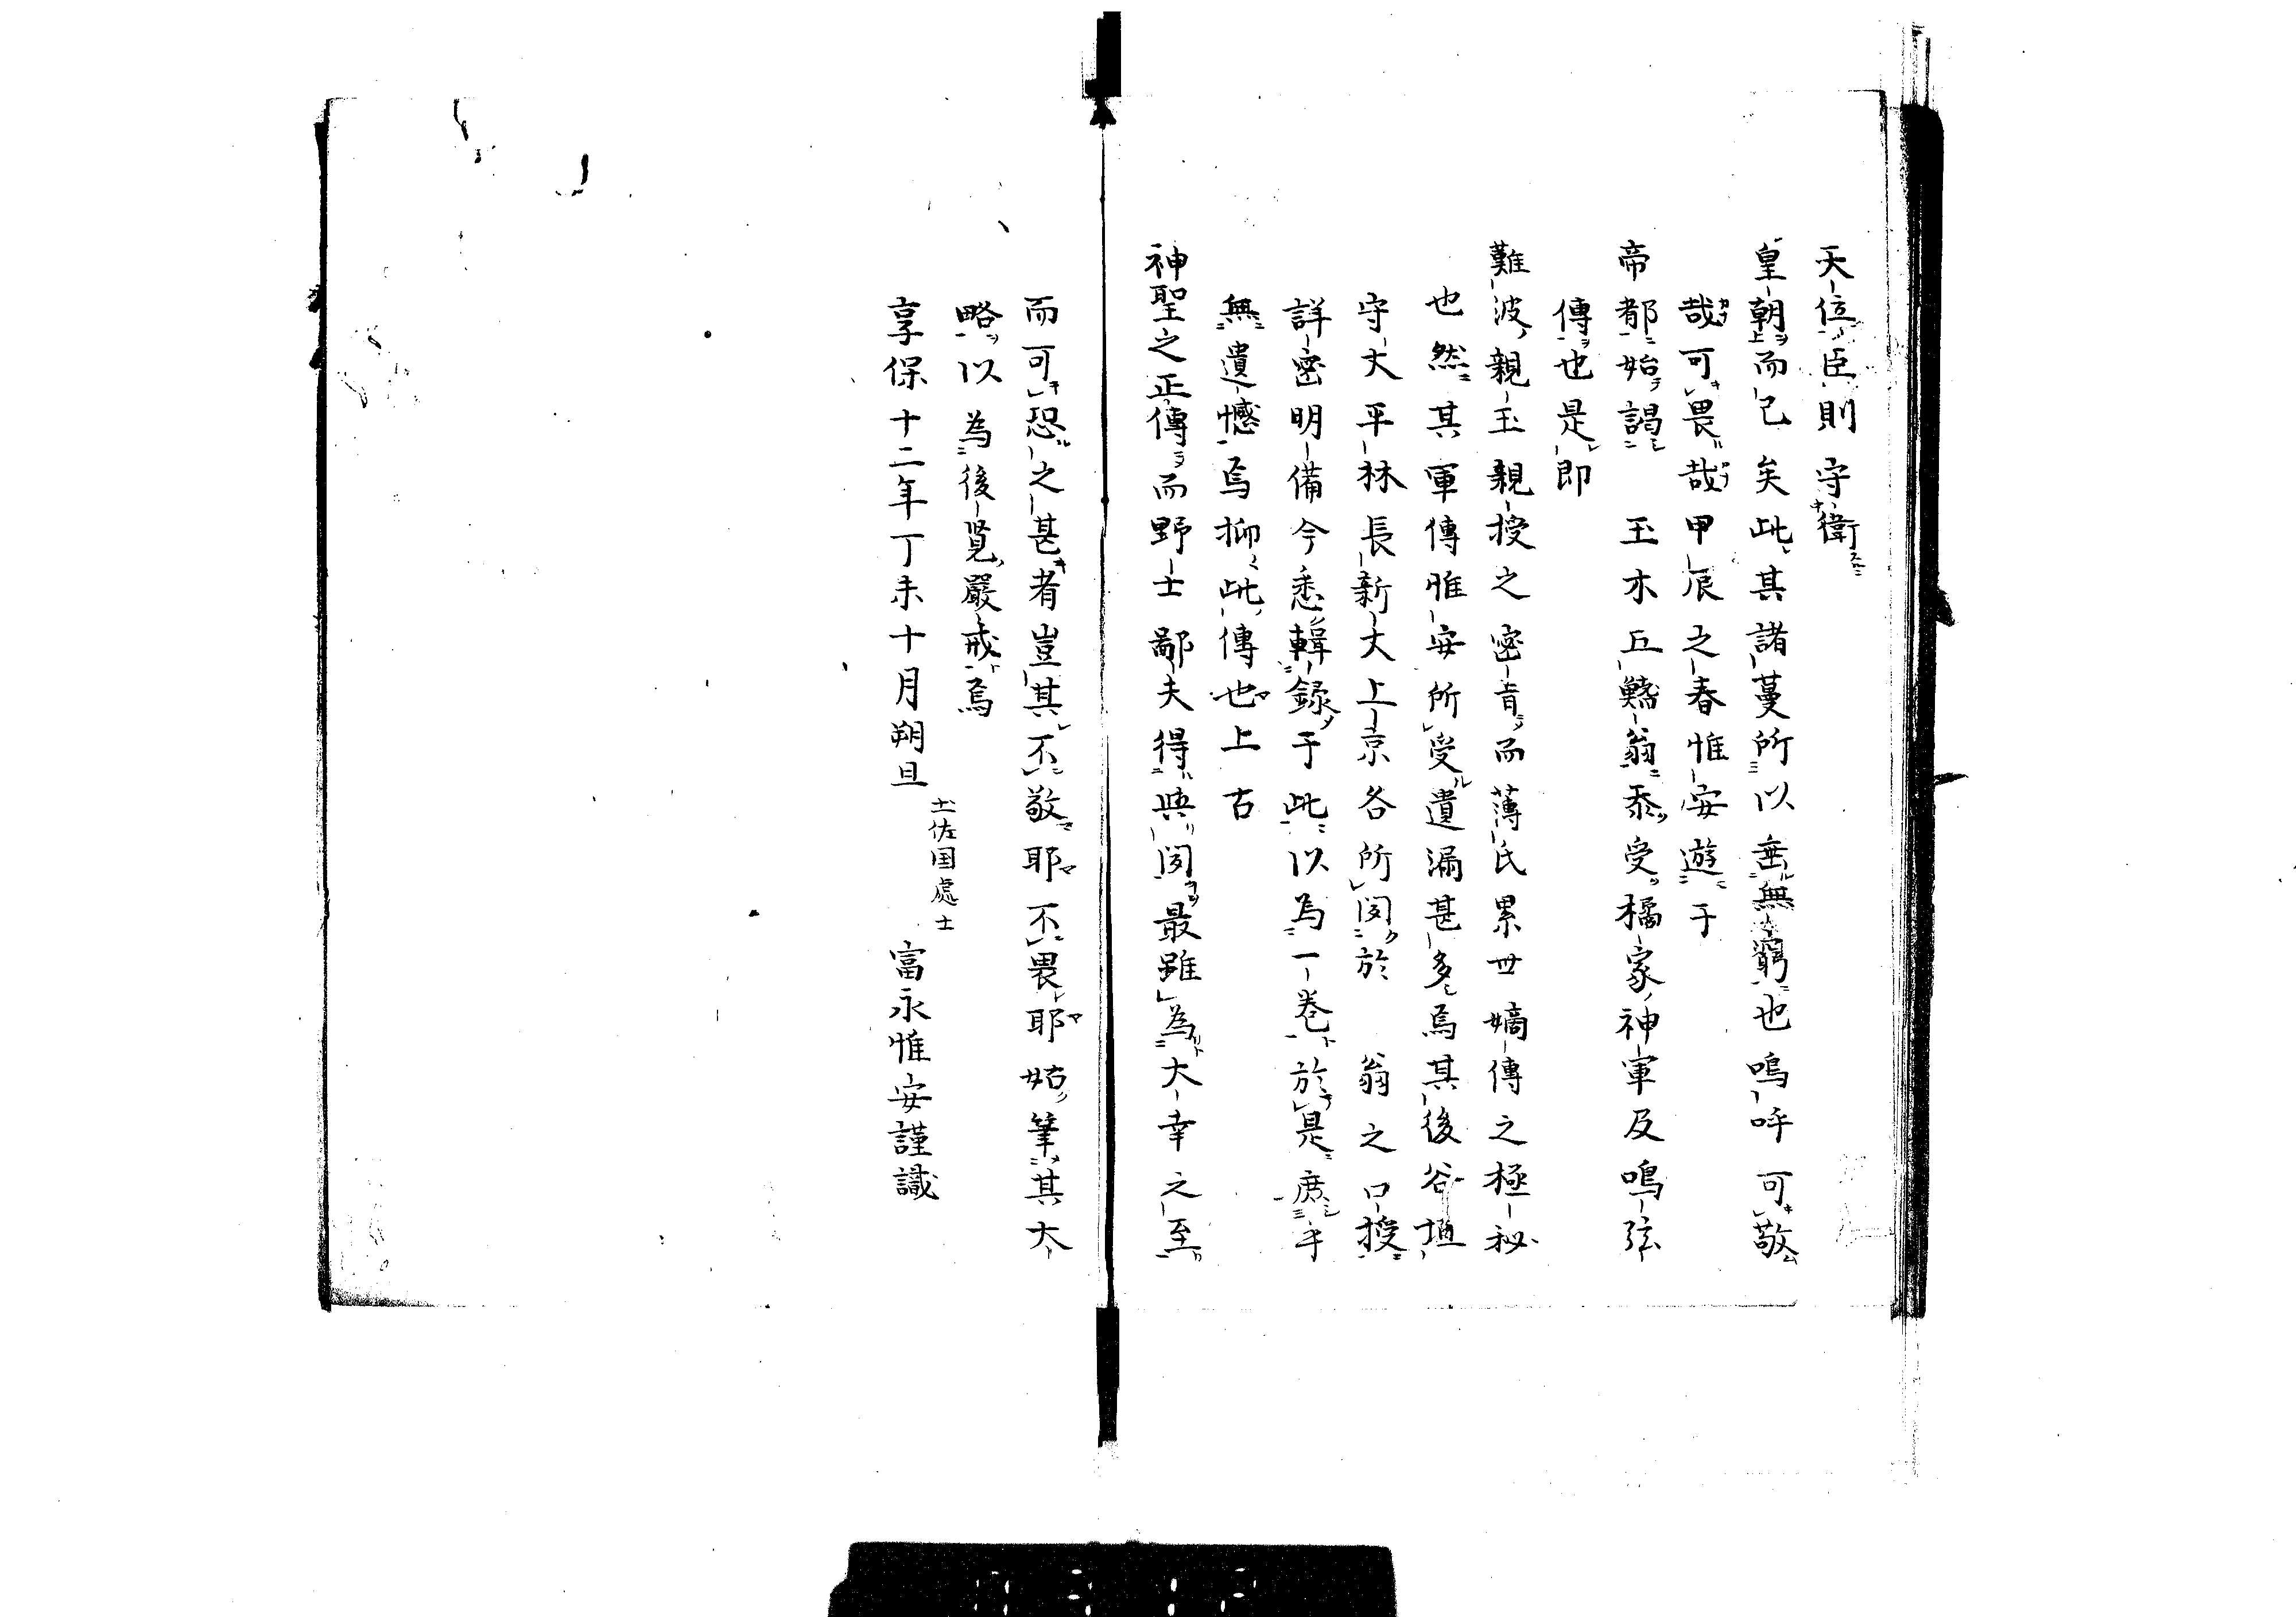 天位臣則守衛
皇朝而已矣此其諸蔓所以垂無窮也嗚呼可敬
哉可畏哉甲辰之春惟安遊于
帝都始謁　玉木正鰭翁忝受橘家神軍及鳴弦
傳也是即
難波親王親授之密旨而薄氏累世嫡傳之極秘
也然其軍傳惟安所受遺漏甚多焉其後谷垣
守大平林長新大上京各所聞於　翁之口授
詳密明備今悉輯録于此以為一巻於是庶乎
無遺憾焉抑此傳也上古
神聖之正傳而野士鄙夫得與聞最雖為大幸之至
而可恐之甚者豈其不敬耶不畏耶姑筆其大
略以為後覧嚴戒焉
享保十二年丁未十月朔旦
土佐国處士
富永惟安謹識